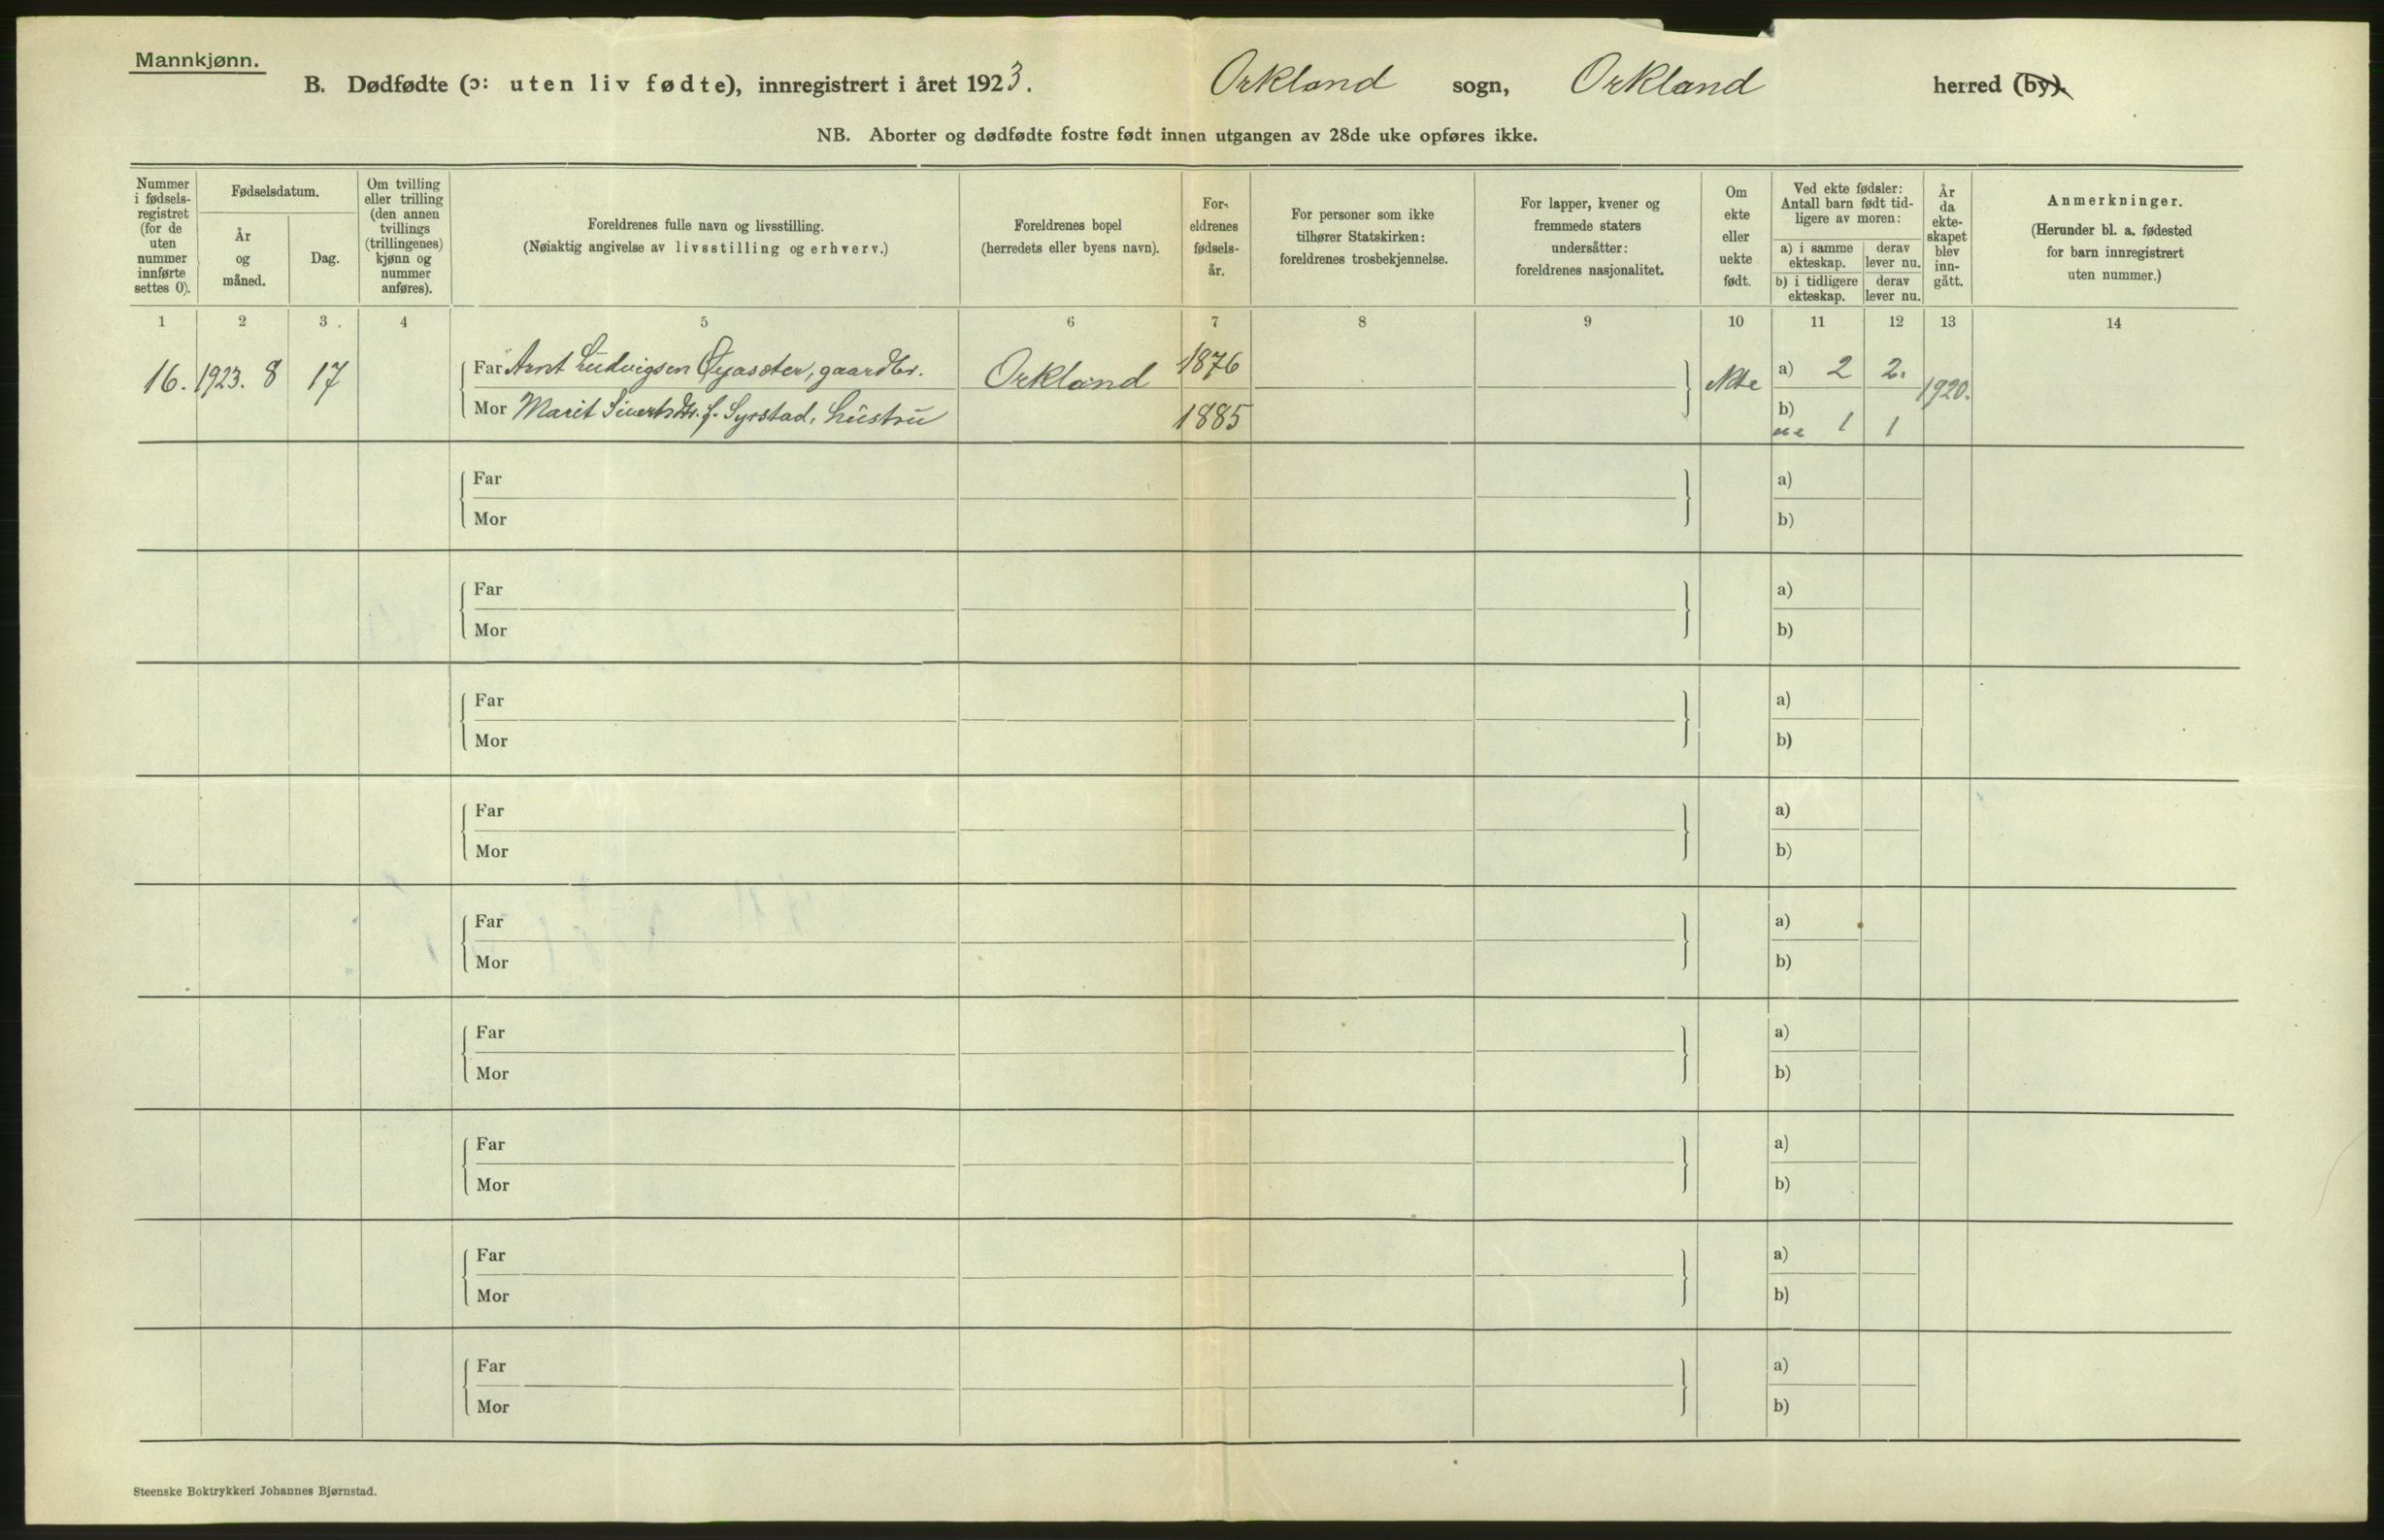 Mannkjønn.
B. Dødfødte (ɔ: uten liv fødte), innregistrert i året 1923. Orkland sogn, Orkland herred (by).
NB. Aborter og dødfødte fostre født innen utgangen av 28de uke opføres ikke.
Nummer
i fødsels-
registret
(for de
uten
nummer
innførte
settes 0).
Fødselsdatum.
År
og
måned.
Dag.
Om tvilling
eller trilling
(den annen
tvillings
(trillingenes)
kjønn og
nummer
anføres).
Foreldrenes fulle navn og livsstilling.
(Nøiaktig angivelse av livsstilling og erhverv.)
Foreldrenes bopel
(herredets eller byens navn).
For-
eldrenes
fødsels-
år.
For personer som ikke
tilhører Statskirken:
foreldrenes trosbekjennelse.
For lapper, kvener og
fremmede staters
undersåtter:
foreldrenes nasjonalitet.
Om
ekte
eller
uekte
født.
Ved ekte fødsler:
Antall barn født tid-
ligere av moren:
a) i samme
ekteskap.
derav
lever nu.
b) i tidligere
ekteskap.
derav
lever nu.
År
da
ekte-
skapet
blev
inn-
gått.
Anmerkninger.
(Herunder bl. a. fødested
for barn innregistrert
uten nummer.)
1 2 3 4 5 6 7 8 9 10 11 12 13 14
16. 1923. 8 17
Far Arnt Ludvigsen Øyasæter, gaardbr. Orkland 1876 Ekte a) 2 2. 1920.
Mor Marit Sivertsdtr. f. Syrstad, hustru 1885 b) ue 1 1
Far a)
Mor b)
Far a)
Mor b)
Far a)
Mor b)
Far a)
Mor b)
Far a)
Mor b)
Far a)
Mor b)
Far a)
Mor b)
Far a)
Mor b)
Far a)
Mor b)
Steenske Boktrykkeri Johannes Bjørnstad.